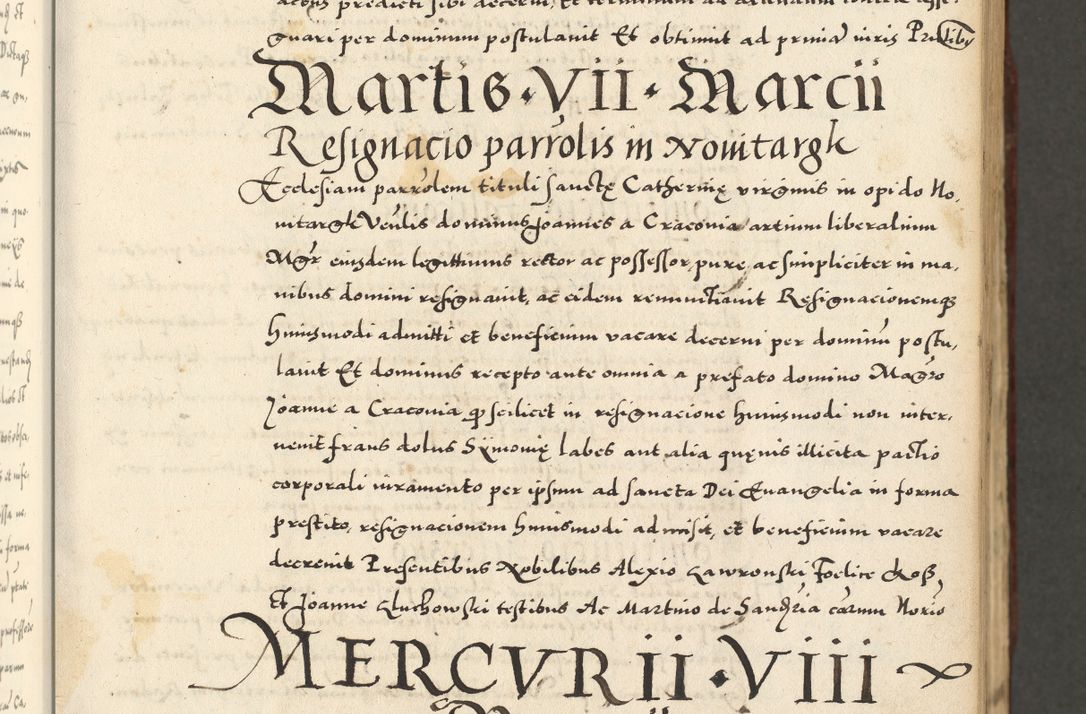 guari per dominum postulavit Et obtinuit ad primã iuris Pntibꝫ
Martis · VII · Marcii
Resignacio parrõlis in Novitargk
Ecclesiam parrõlem tituli Sanctę Catherinę virginis in opido No,
vitargk Venẽlis dominus Joannes a Cracovia artium liberalium
Mgr̃ eiusdem legittimus rector ac possessor, pure, ac simpliciter in ma,
nibus domini resignavit, ac eidem renunctiavit Resignacionemqꝫ
huiusmodi admitti et beneficium vacare decerni per dominũ postu,
lavit Et dominus recepto ante omnia a prefato domino Magr̃o
Joanne a Cracovia ꝙ scilicet in resignacione huiusmodi non inter,
venit fraus dolus Symonię labes aut alia quęvis illicita pactio
corporali iuramento per ipsum ad sancta Dei Evangelia in forma
prestito, resignacionem huiusmodi admisit, et beneficium vacare
decrevit Presentibus Nobilibus Alexio Gawronski Foelice
Et Joanne Gluchowski testibus Ac Martino de Sandr̃ia Notrio
MERCVRII · VIII